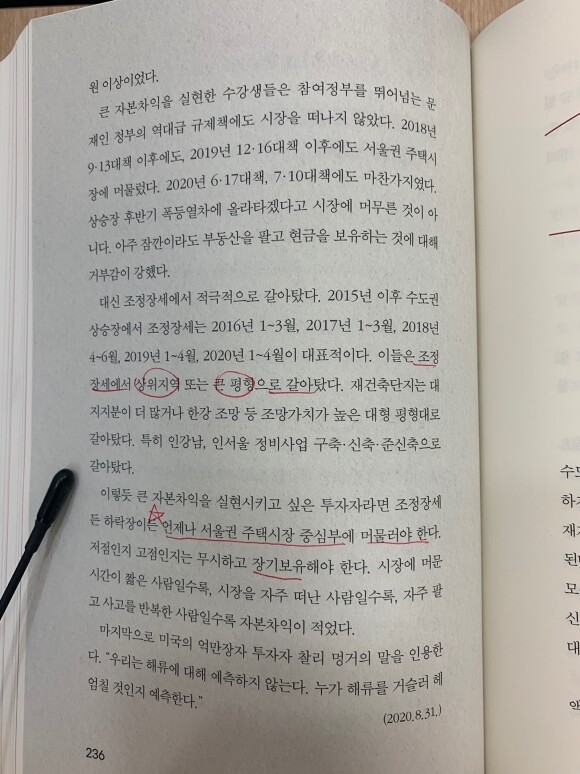 원 이상이었다.
큰 자본차익을 실현한 수강생들은 참여정부를 뛰어넘는 문
재인 정부의 역대급 규제책에도 시장을 떠나지 않았다. 2018년
9·13대책 이후에도, 2019년 12·16대책 이후에도 서울권 주택시
장에 머물렀다. 2020년 6·17대책, 7·10대책에도 마찬가지였다.
상승장 후반기 폭등열차에 올라타겠다고 시장에 머무른 것이 아
니다. 아주 잠깐이라도 부동산을 팔고 현금을 보유하는 것에 대해
거부감이 강했다.
대신 조정장세에서 적극적으로 갈아탔다. 2015년 이후 수도권
상승장에서 조정장세는 2016년 1~3월, 2017년 1~3월, 2018년
4~6월, 2019년 1~4월, 2020년 1~4월이 대표적이다. 이들은 조정
장세에서 상위지역 또는 큰 평형으로 갈아탔다. 재건축단지는 대
지지분이 더 많거나 한강 조망 등 조망가치가 높은 대형 평형대로
갈아탔다. 특히 인강남, 인서울 정비사업 구축·신축·준신축으로
갈아탔다.
이렇듯 큰 자본차익을 실현시키고 싶은 투자자라면 조정장세
든 하락장이든 언제나 서울권 주택시장 중심부에 머물러야 한다.
저점인지 고점인지는 무시하고 장기보유해야 한다. 시장에 머문
시간이 짧은 사람일수록, 시장을 자주 떠난 사람일수록, 자주 팔
고 사고를 반복한 사람일수록 자본차익이 적었다.
마지막으로 미국의 억만장자 투자자 찰리 멍거의 말을 인용한
다. “우리는 해류에 대해 예측하지 않는다. 누가 해류를 거슬러 헤
엄칠 것인지 예측한다.”
(2020.8.31.)
236
수도
하지
재
된다
모
신
대